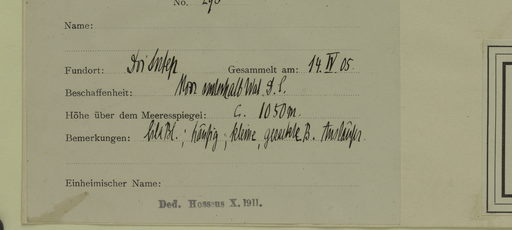 No. 296
Name:
Fundort: Doi Sutep Gesammelt am: 14. IV 05
Beschaffenheit: Moor unterhalb
Höhe über dem Meeresspiegel: c. 1050 m.
Bemerkungen: häufig, kleine, B. Ausläufer
Einheimischer Name:
Ded. Hosseus X. 1911.